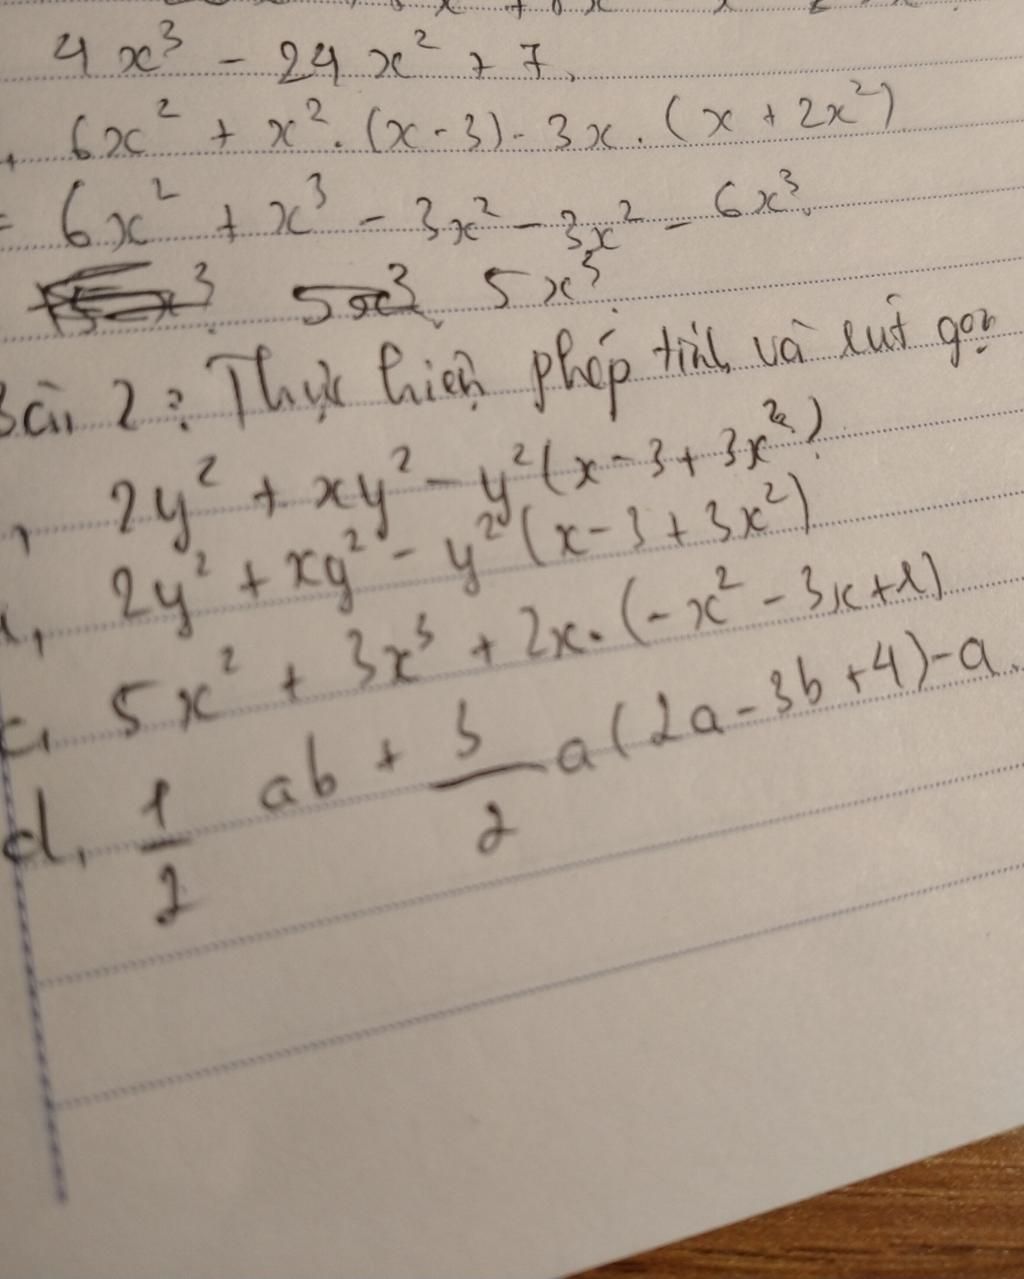 4x³ - 24x² + 7
6x² + x².(x-3)-3x.(x+2x²)
= 6x² + x³ - 3x² - 3x² - 6x³
5x³ 5x³
Bài 2: Thực hiện phép tính và rút gọn
2y² + xy² - y²(x-3+3x²)
2y² + xy² - y²(x-3+3x²)
c, 5x² + 3x³ + 2x.(-x²-3x+1)
d, 1/2 ab + 3/2 a(2a-3b+4)-a